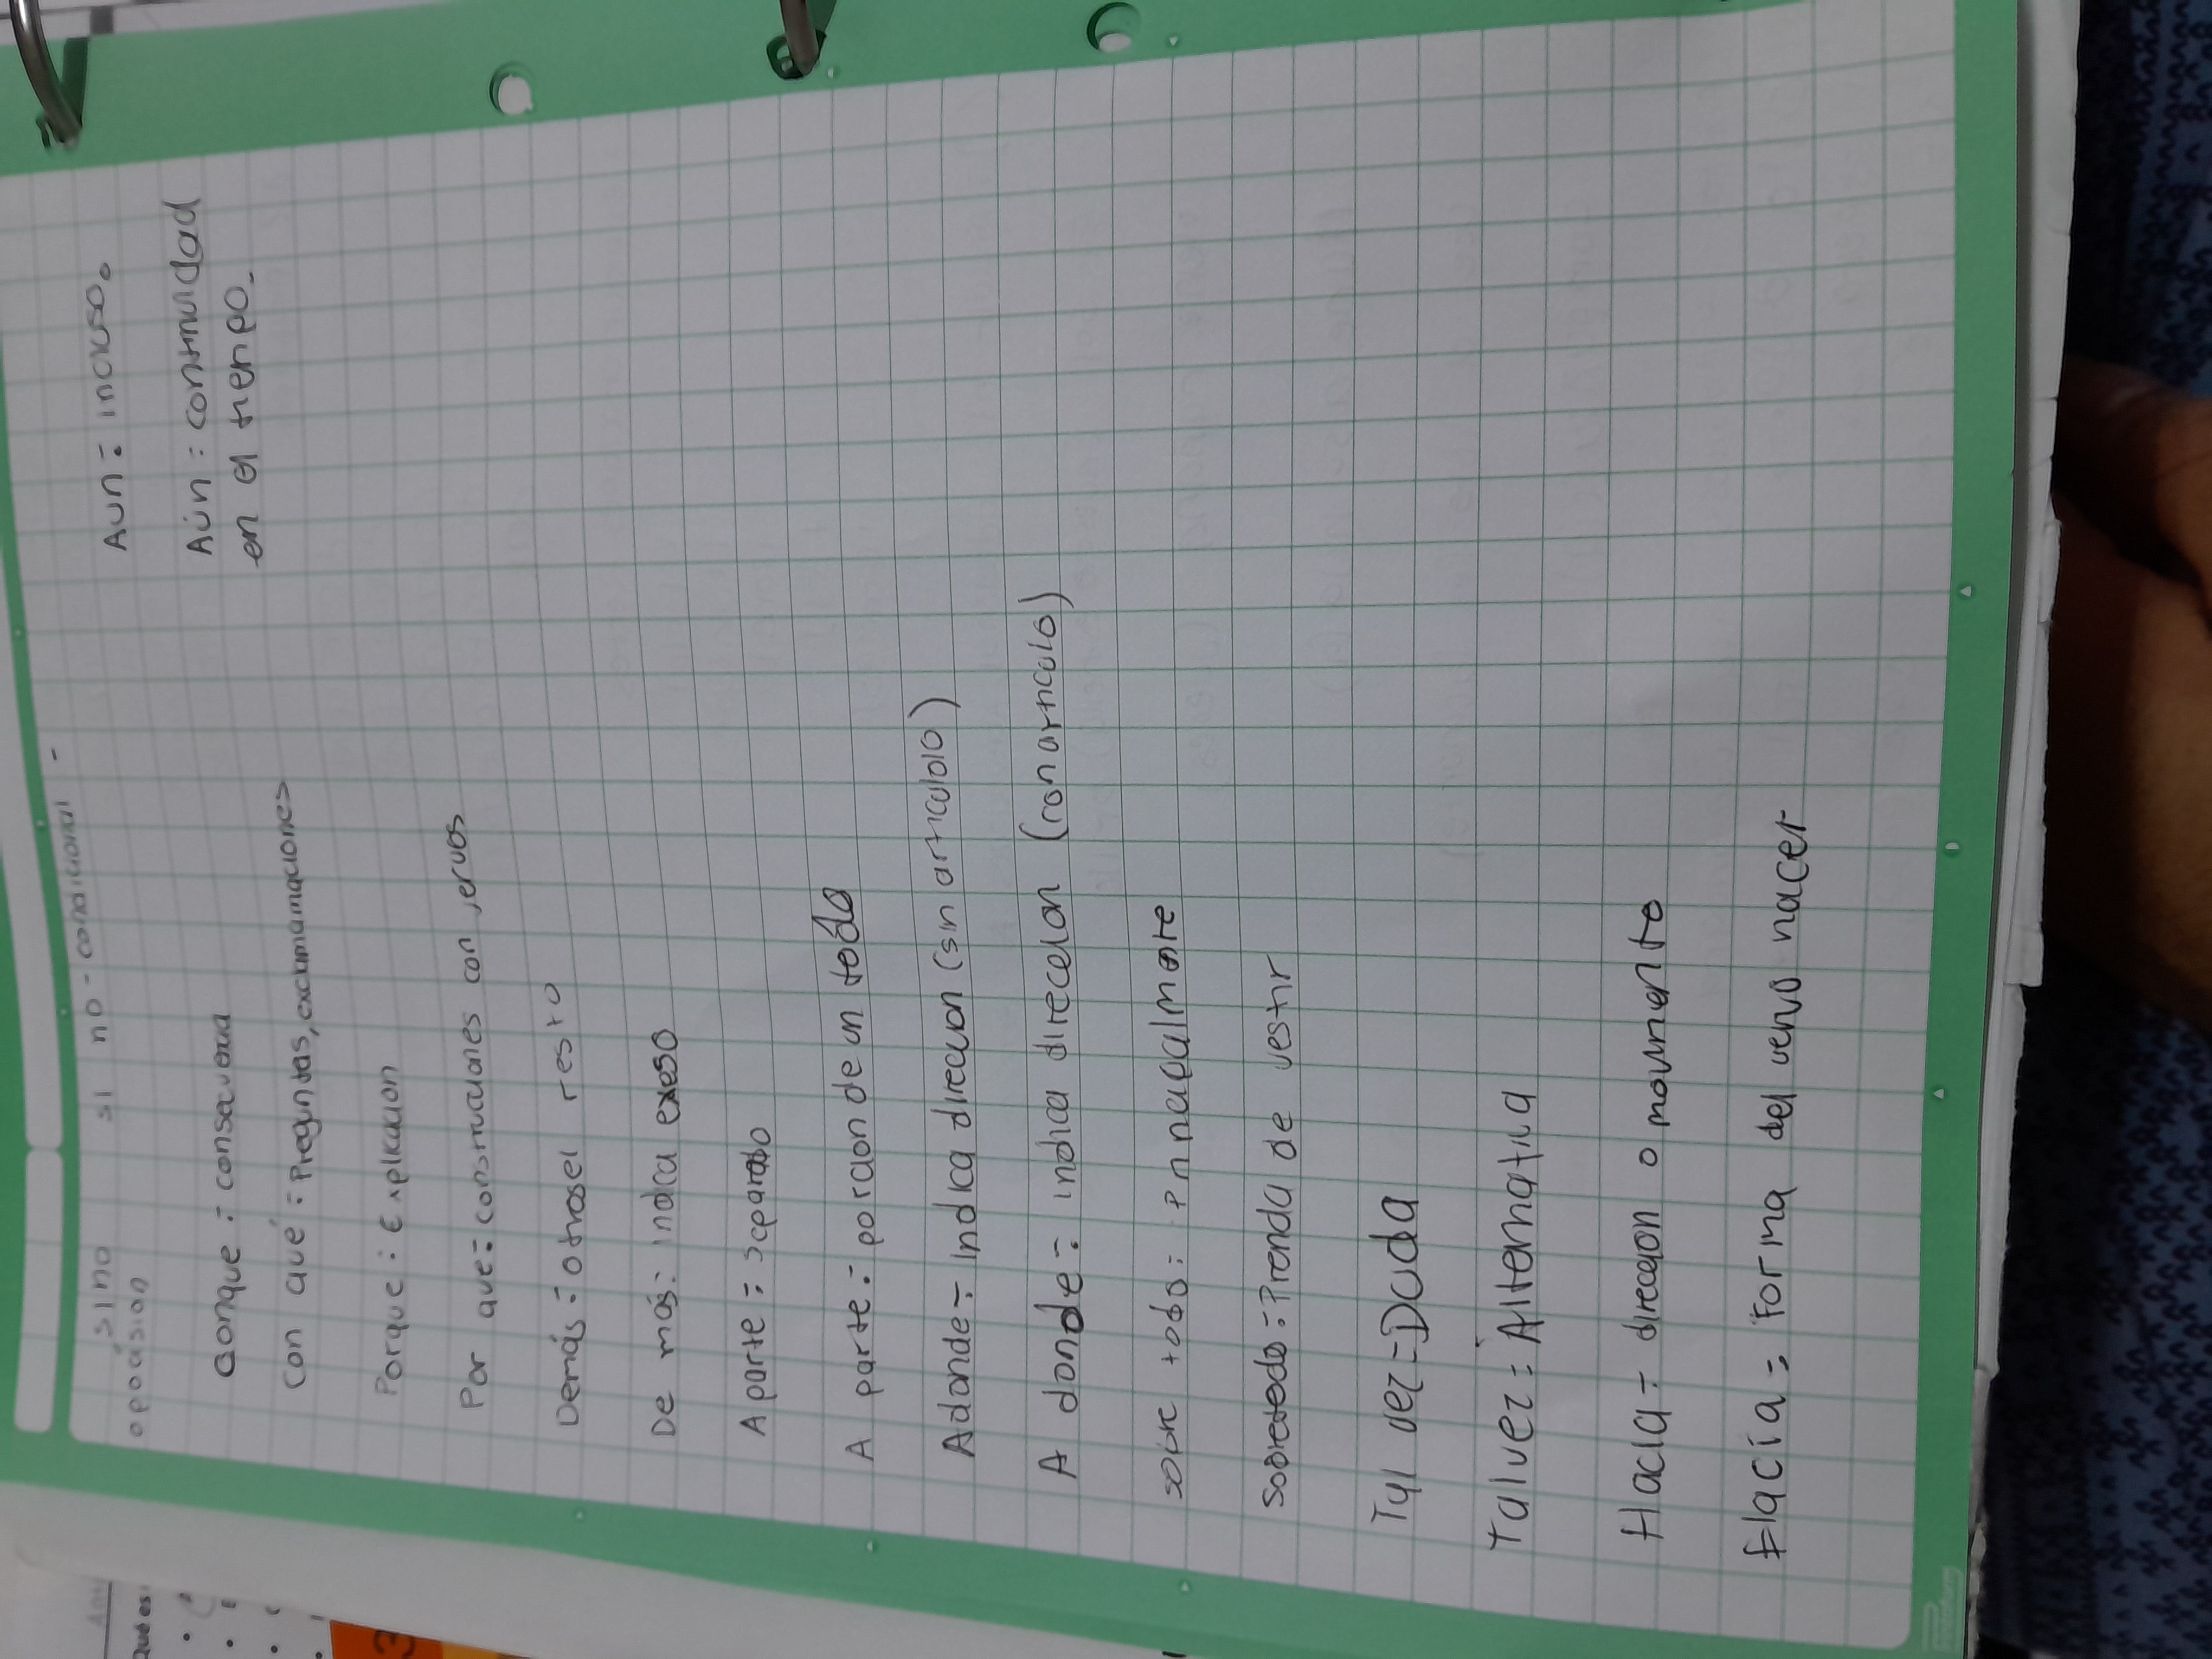 sino si no - condicional -
oposicion
Aun: incluso.
Conque: consecuencia
Aún: continuidad
en el tiempo.
Con qué: Preguntas, exclamamaciones
Porque: Explicacion
Por que: construcciones con verbos
Demás: otrosel resto
De más: indica exeso
Aparte: separado
A parte: porcion de un todo
Adonde: Indica direccion (sin articulolo)
A donde: indica direccion (con articulo)
sobre todo: principalmente
Sobretodo: Prenda de vestir
Tal vez: Duda
Talvez: Alternativa
Hacia: direccion o movimiento
Hacía: Forma del verbo hacer